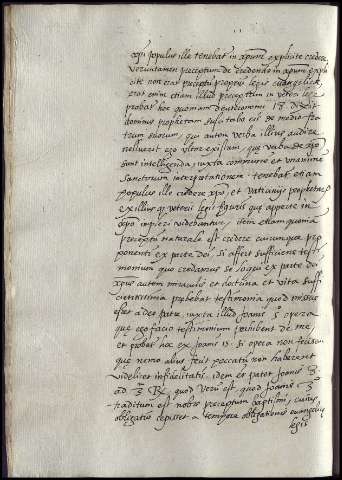 xpi populus ille tenebat in xpum explicite credere
verumtamen preceptum de credendo in xpum expli
cite non erat preceptũ propriũ legis euangelice
erat enim etiam illud preceptum in veteri lege
probat hoc quoniam deutronomii 18 dixit
dominus prophetam suscitabo eis de medio fra
trum suorum, qui autem verba illius audire
noluerit ego ultor existam, que verba de xpo
sunt intelligenda, iuxta communem et unanime
sanctorum interpretationem tenebat etiam
populus ille credere xpo, et prophetis
ex illius veteris legis figuris que aperte in
xpo impleri videbantur, item etiam quia
preceptũ naturale est credere cuicunque pro
ponenti ex parte dei, si afert sufficiens testi
monium quo credamus se loqui ex parte dei
xpus autem miraculis et doctrina et vita suffi
cientissima prebebat testimonia quod missus
esset a deo patre, iuxta illud Joanis 5 opera
que ego facio testimonium perhibent de me,
et probat hoc ex Joanis 15. si opera non fecissem
que nemo alius fecit peccatũ non haberent
videlicet infidelitatis. idem et patet Joanis 3.
ad 3 Rx quod verũ est quod Joanis 3
traditum est nobis preceptum baptismi, cuius
obligatio cepisset a tempore obligationis euangelice
legis